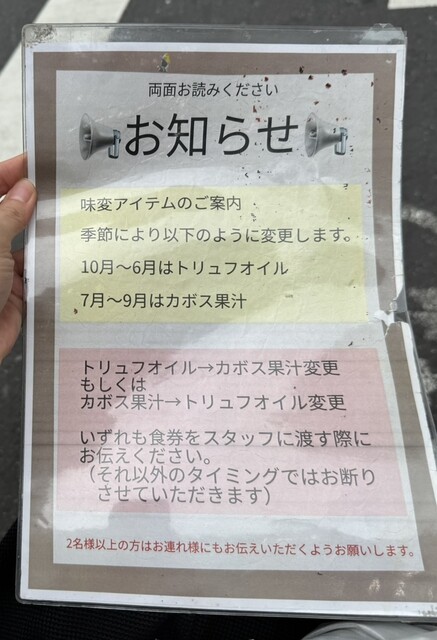 両面お読みください
お知らせ
味変アイテムのご案内
季節により以下のように変更します。
10月～6月はトリュフオイル
7月～9月はカボス果汁
トリュフオイル→カボス果汁変更
もしくは
カボス果汁→トリュフオイル変更
いずれも食券をスタッフに渡す際に
お伝えください。
（それ以外のタイミングではお断り
させていただきます）
2名様以上の方はお連れ様にもお伝えいただくようお願いします。